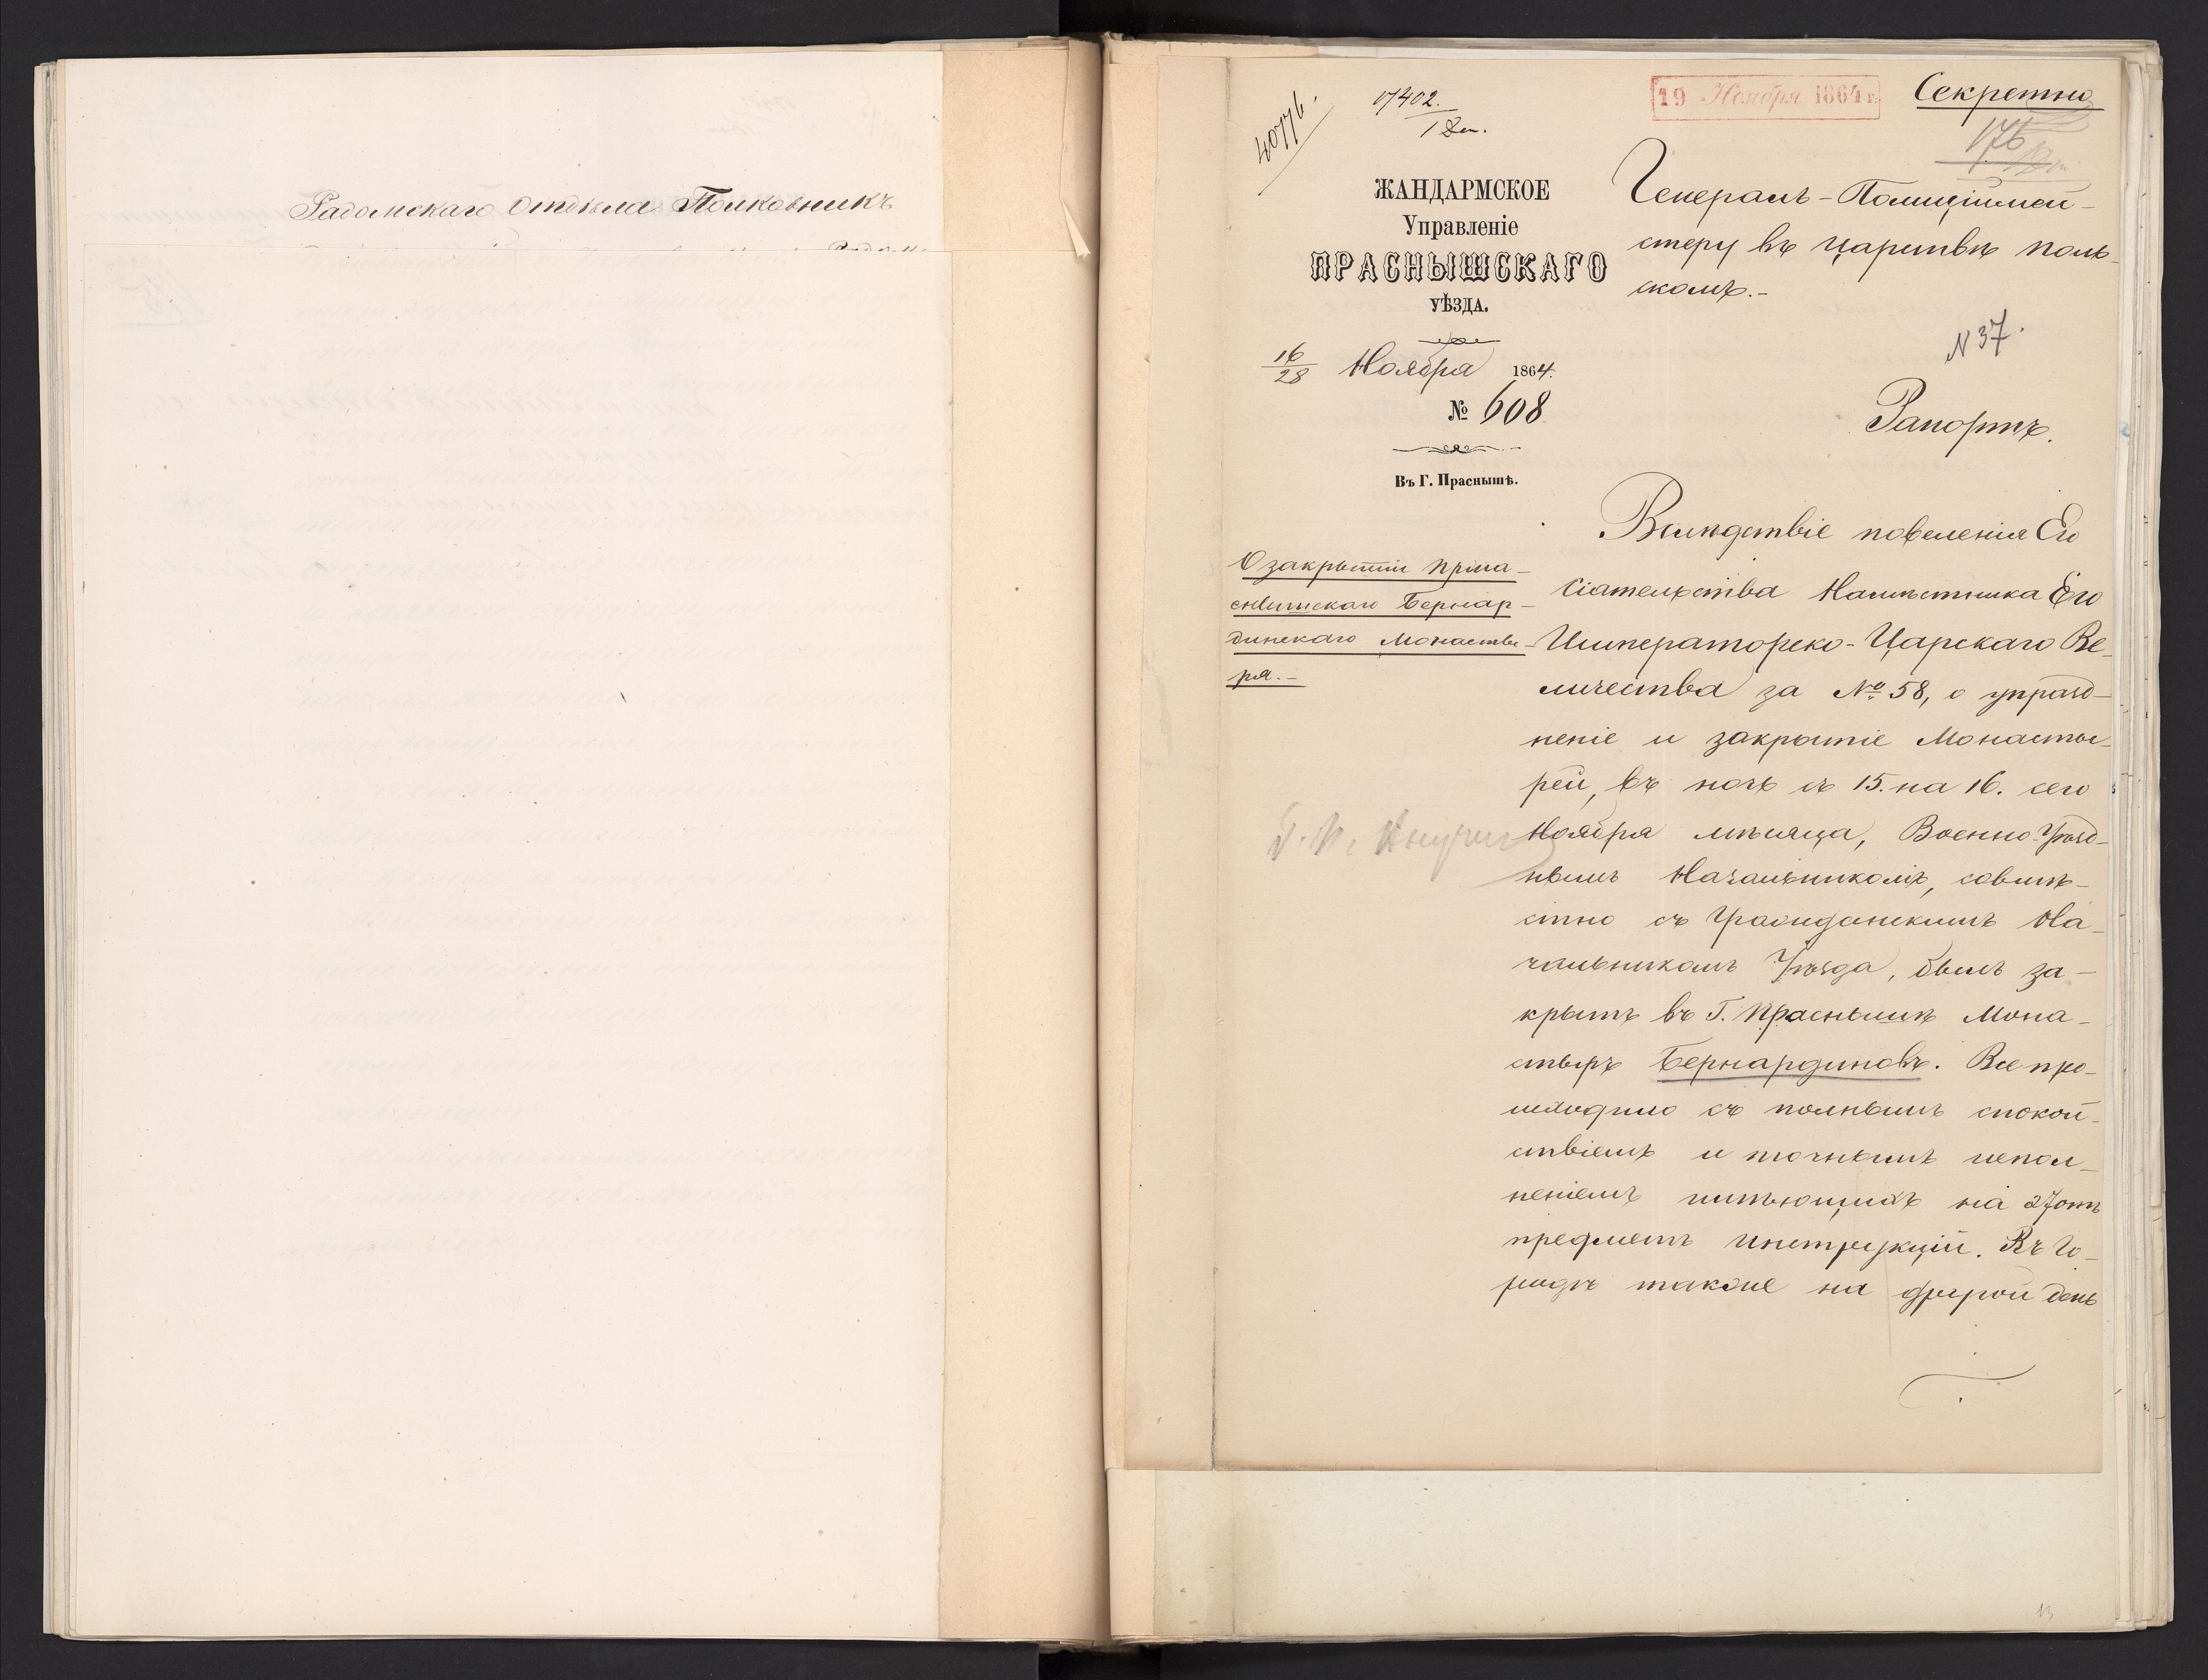 Радомскаго Отдѣла Полковникъ
40776.
19 Ноября 1864 г.
Секретно
176
ЖАНДАРМСКОЕ
Управленіе
ПРАСНЫШСКАГО
УѢЗДА.
16/28 Ноября 1864.
№ 608
Въ Г. Праснышѣ.
Генералъ-Полиціймей-
стеру въ Царствѣ Поль-
скомъ.-
N 37.
Рапортъ.
О закрытіи Праш-
снышскаго Бернар-
динскаго Монасты-
ря.-
Вслѣдствіе повеленія Его
Сіятельства Намѣстника Его
Императорско-Царскаго Ве-
личества за № 58, о упразд-
неніе и закрытіе Монасты-
рей, въ ночь съ 15. на 16. сего
Ноября мѣсяца, Военно-Уѣзд-
нымъ Начальникомъ, совмѣ-
стно съ Гражданскимъ На-
чальникомъ Уѣзда, былъ за-
крытъ въ Г. Праснышѣ Мона-
стырь Бернардиновъ. Все про-
исходило съ полнымъ спокой-
ствіемъ и точнымъ испол-
неніемъ имѣющихъ на этотъ
предметъ инструкцій. Въ Го-
родѣ также на другой день